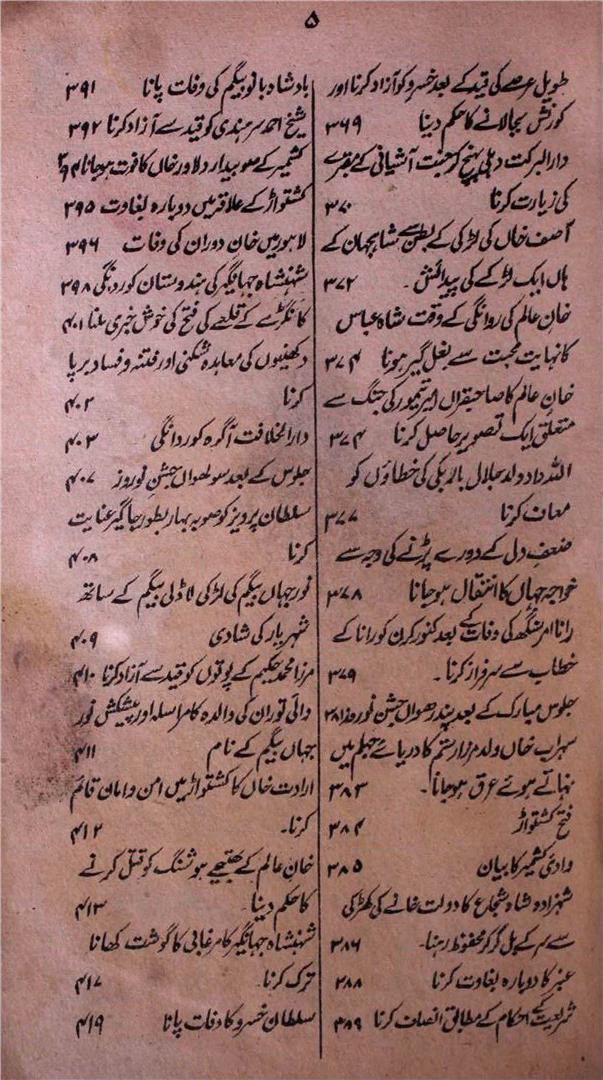 ۵
طویل عرصے کی قید کے بعد خسرو کو آزاد کرنا اور
کورنش بجالانے کا حکم دینا ۳۶۹
دارالبرکت دہلی پہنچ کر جنت آشیانی کے مقبرے
کی زیارت کرنا ۳۷۰
آصف خاں کی لڑکی کے بطن سے شاہجہان کے
ہاں ایک لڑکے کی پیدائش ۔ ۳۷۲
خان عالم کی روانگی کے وقت شاہ عباس
کا نہایت محبت سے بغل گیر ہونا ۳۷۴
خان عالم کا صاحبقراں امیر تیمور کی جنگ سے
متعلق ایک تصویر حاصل کرنا ۳۷۴
اللہ داد ولد جلال باریکی کی خطاؤں کو
معاف کرنا ۳۷۷
ضعف دل کے دورے پڑنے کی وجہ سے
خواجہ جہاں کا انتقال ہوجانا ۳۷۸
رانا امر سنگھ کی وفات کے بعد کنور کرن کو رانا کے
خطاب سے سرفراز کرنا ۔ ۳۷۹
جلوس مبارک کے بعد پندرھواں جشن نوروز ۳۸۱
سہراب خاں ولد مرزا رستم کا دریائے جہلم میں
نہاتے ہوئے غرق ہوجانا ۔ ۳۸۳
فتح کشتواڑ ۳۸۴
وادی کشمیر کا بیان ۳۸۵
شہزادہ شاہ شجاع کا دولت خانے کی کھڑکی
سے سر کے بل گر کر محفوظ رہنا ۔ ۳۸۶
عنبر کا دوبارہ بغاوت کرنا ۳۸۸
شریعت کے احکام کے مطابق انصاف کرنا ۳۸۹
بادشاہ بانو بیگم کی وفات پانا ۳۹۱
شیخ احمد سرہندی کو قید سے آزاد کرنا ۳۹۲
کشمیر کے صوبیدار دلاور خاں کا فوت ہوجانا
کشتواڑ کے علاقہ میں دوبارہ بغاوت ۳۹۵
لاہور میں خان دوران کی وفات ۳۹۶
شہنشاہ جہانگیر کی ہندوستان کو روانگی ۳۹۸
کانگڑے کے قلعے کی فتح کی خوش خبری ملنا ۴۰۱
دکھنیوں کی معاہدہ شکنی اور فتنہ و فساد برپا
کرنا ۴۰۲
دارالخلافت آگرہ کو روانگی ۴۰۳
جلوس کے بعد سولھواں جشن نوروز ۴۰۷
سلطان پرویز کو صوبہ بہار بطور جاگیر عنایت
کرنا ۴۰۸
نور جہاں بیگم کی لڑکی لاڈلی بیگم کے ساتھ
شہریار کی شادی ۴۰۹
مرزا محمد حکیم کے پوتوں کو قید سے آزاد کرنا ۴۱۰
والئ توران کی والدہ کا مراسلہ اور پیشکش نور
جہاں بیگم کے نام ۴۱۱
ارادت خاں کا کشتواڑ میں امن و امان قائم
کرنا ۔ ۴۱۲
خان عالم کے بھتیجے ہوشنگ کو قتل کرنے
کا حکم دینا ۴۱۳
شہنشاہ جہانگیر کا مرغابی کا گوشت کھانا
ترک کرنا ۔ ۴۱۷
سلطان خسرو کا وفات پانا ۴۱۹